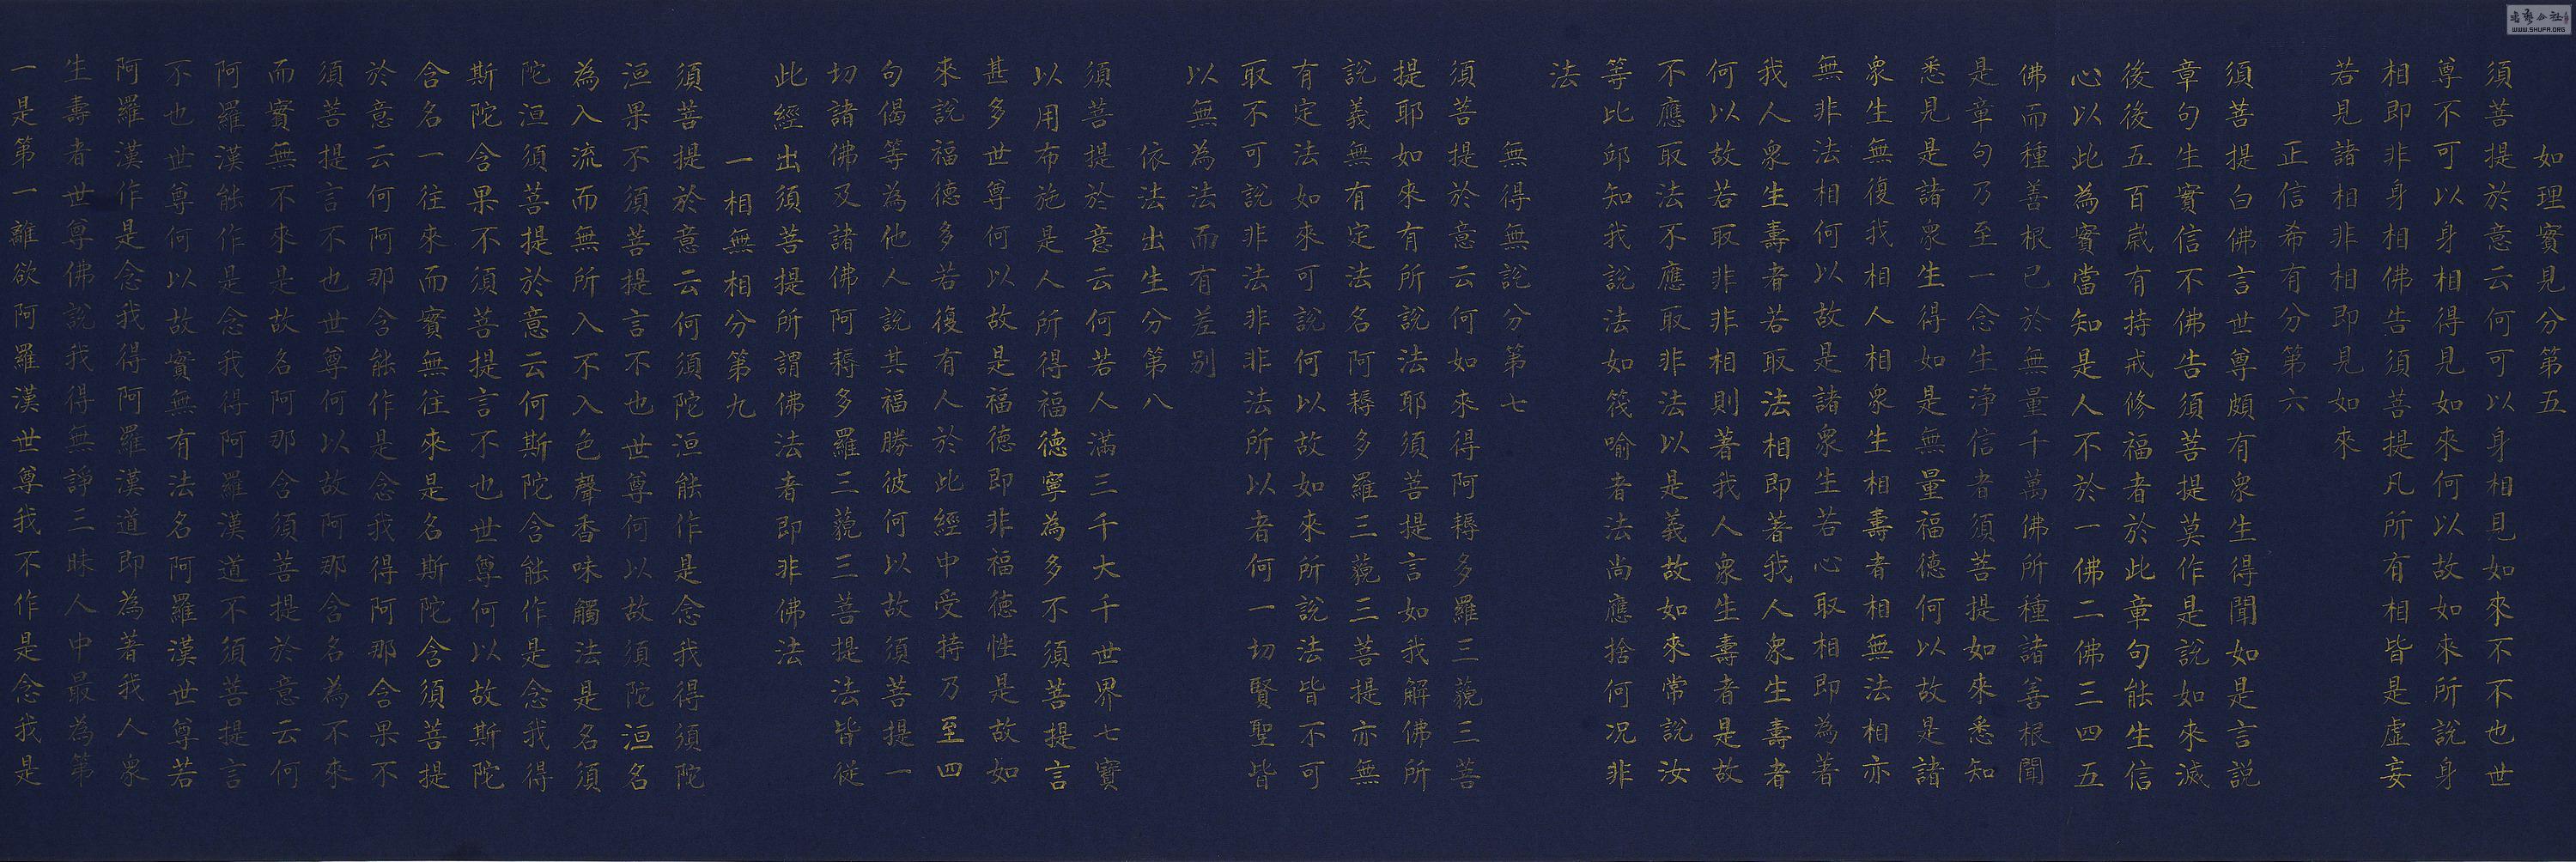 如理實見分第五
須菩提於意云何可以身相見如來不不也世
尊不可以身相得見如來何以故如來所說身
相即非身相佛告須菩提凡所有相皆是虛妄
若見諸相非相即見如來
正信希有分第六
須菩提白佛言世尊頗有衆生得聞如是言說
章句生實信不佛告須菩提莫作是說如來滅
後後五百歲有持戒修福者於此章句能生信
心以此為實當知是人不於一佛二佛三四五
佛而種善根已於無量千萬佛所種諸善根聞
是章句乃至一念生淨信者須菩提如來悉知
悉見是諸衆生得如是無量福德何以故是諸
衆生無復我相人相衆生相壽者相無法相亦
無非法相何以故是諸衆生若心取相即為著
我人衆生壽者若取法相即著我人衆生壽者
何以故若取非非相則著我人衆生壽者是故
不應取法不應取非法以是義故如來常說汝
等比邱知我說法如筏喻者法尚應捨何況非
法
無得無說分第七
須菩提於意云何如來得阿耨多羅三藐三菩
提耶如來有所說法耶須菩提言如我解佛所
說義無有定法名阿耨多羅三藐三菩提亦無
有定法如來可說何以故如來所說法皆不可
取不可說非法非非法所以者何一切賢聖皆
以無為法而有差別
依法出生分第八
須菩提於意云何若人滿三千大千世界七寶
以用布施是人所得福德寧為多不須菩提言
甚多世尊何以故是福德即非福德性是故如
來說福德多若復有人於此經中受持乃至四
句偈等為他人說其福勝彼何以故須菩提一
切諸佛及諸佛阿耨多羅三藐三菩提法皆從
此經出須菩提所謂佛法者即非佛法
一相無相分第九
須菩提於意云何須陀洹能作是念我得須陀
洹果不須菩提言不也世尊何以故須陀洹名
為入流而無所入不入色聲香味觸法是名須
陀洹須菩提於意云何斯陀含能作是念我得
斯陀含果不須菩提言不也世尊何以故斯陀
含名一往來而實無往來是名斯陀含須菩提
於意云何阿那含能作是念我得阿那含果不
須菩提言不也世尊何以故阿那含名為不來
而實無不來是故名阿那含須菩提於意云何
阿羅漢能作是念我得阿羅漢道不須菩提言
不也世尊何以故實無有法名阿羅漢世尊若
阿羅漢作是念我得阿羅漢道即為著我人衆
生壽者世尊佛說我得無諍三昧人中最為第
一是第一離欲阿羅漢世尊我不作是念我是
WWW.SHUFA.ORG